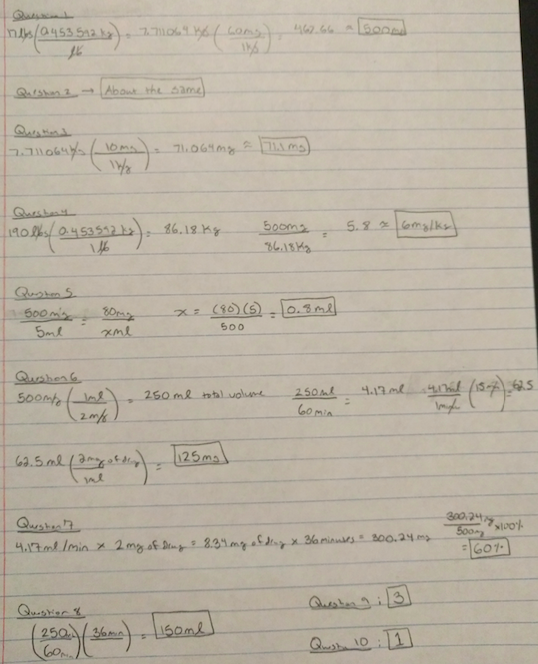 Question 1
17 lbs (0.453592 kg / lb) = 7.711064 kg (60mg / 1kg) = 462.66 ≈ 500ml
Question 2 → About the same
Question 3
7.711064 kg (10mg / 1kg) = 71.064mg ≈ 71.1mg
Question 4
190 lbs (0.453592 kg / 1 lb) = 86.18 kg 500mg / 86.18kg = 5.8 ≈ 6mg/kg
Question 5
500mg / 5ml = 80mg / xml x = (80)(5) / 500 = 0.8ml
Question 6
500mg (1ml / 2mg) = 250 ml total volume 250ml / 60min = 4.17ml 4.17ml / 1min (15) = 62.5
62.5 ml (2mg of drug / 1ml) = 125mg
Question 7
4.17ml/min x 2mg of Drug = 8.34mg of drug x 36minutes = 300.24mg 300.24mg / 500mg x100% = 60%
Question 8
(250 / 60min)(36min) = 150ml
Question 9: 3
Questn 10: 1